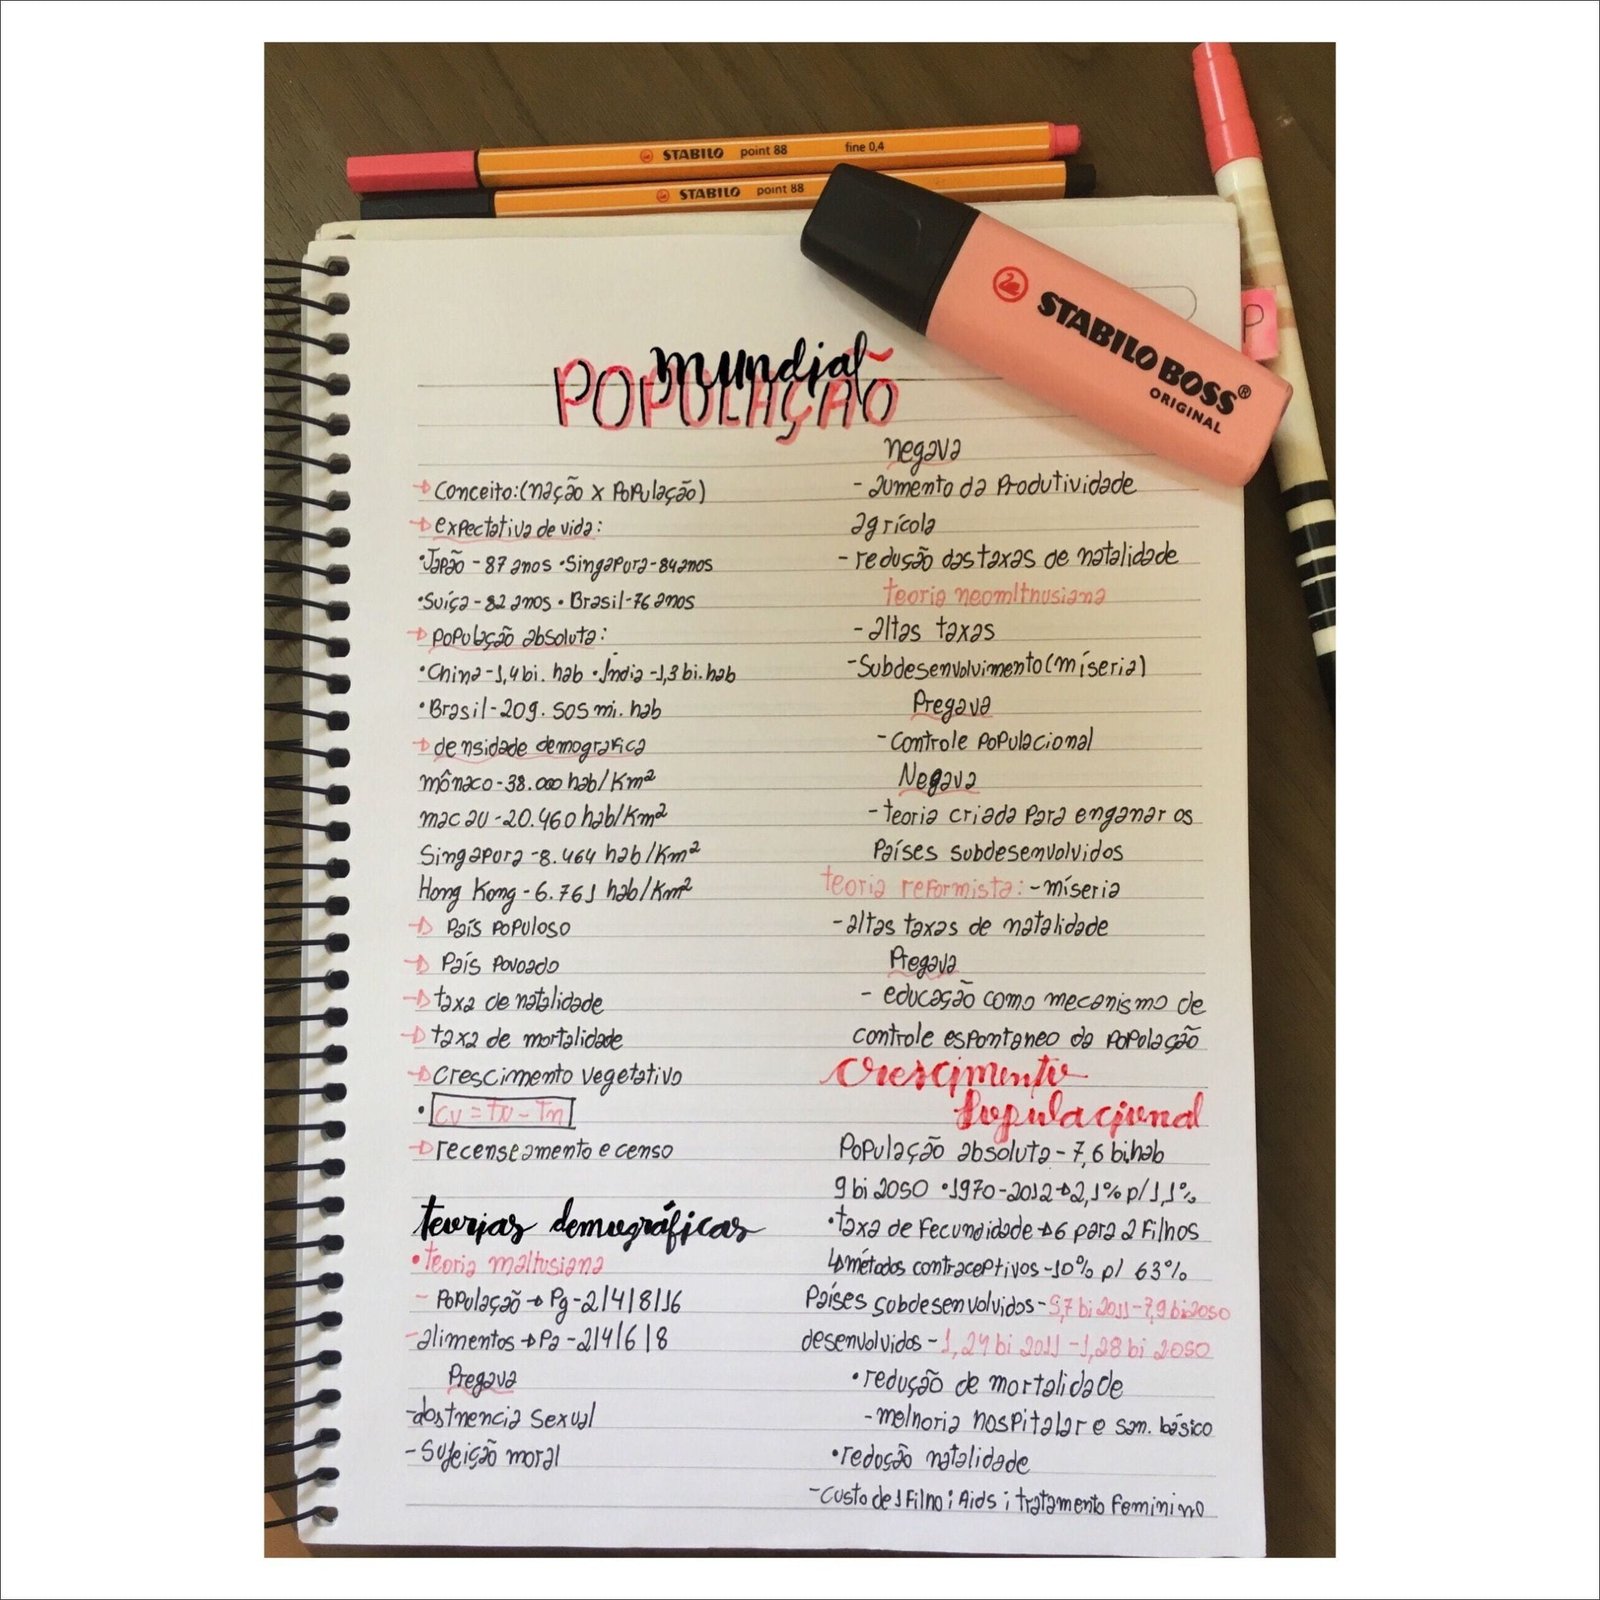 STABILO point 88 fine 0,4
STABILO point 88
STABILO BOSS®
ORIGINAL
mundial
POPULAÇÃO
Conceito: (nação x População)
expectativa de vida:
•Japão - 87 anos •Singapura - 84 anos
•Suíça - 82 anos • Brasil - 76 anos
população absoluta:
•China - 1,4 bi. hab •Índia - 1,3 bi. hab
•Brasil - 209. 505 mi. hab
densidade demografica
mônaco - 38.000 hab/Km²
macau - 20.460 hab/Km²
Singapura - 8.464 hab/Km²
Hong Kong - 6.761 hab/Km²
País Populoso
País Povoado
taxa de natalidade
taxa de mortalidade
crescimento vegetativo
• cv = tv - tn
recenseamento e censo
teorias demográficas
•teoria maltusiana
- População → Pg - 2/4/8/16
- alimentos → Pa - 2/4/6/8
Pregava
- abstnencia sexual
- Sujeição moral
negava
- aumento da Produtividade
agrícola
- redução das taxas de natalidade
teoria neomltnusiana
- altas taxas
- Subdesenvolvimento (míseria)
Pregava
- Controle Populacional
Negava
- teoria criada para enganar os
Países subdesenvolvidos
teoria reformista: - míseria
- altas taxas de natalidade
Pregava
- educação como mecanismo de
controle espontaneo da População
Crescimento
Populacional
População absoluta - 7,6 bi.hab
9 bi 2050 •1970-2012→2,1% p/ 1,1%
•taxa de Fecundidade → 6 para 2 Filhos
↳métodos contraceptivos - 10% p/ 63%
Países subdesenvolvidos - 5,7 bi 2011 - 7,9 bi 2050
desenvolvidos - 1,24 bi 2011 - 1,28 bi 2050
•redução de mortalidade
- melhoria hospitalar e san. básico
•redução natalidade
- custo de 1 Filho ; Aids ; tratamento Feminino